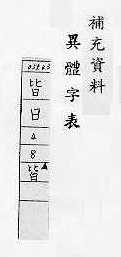 補充資料
異體字表
皆
日
4
8
皆